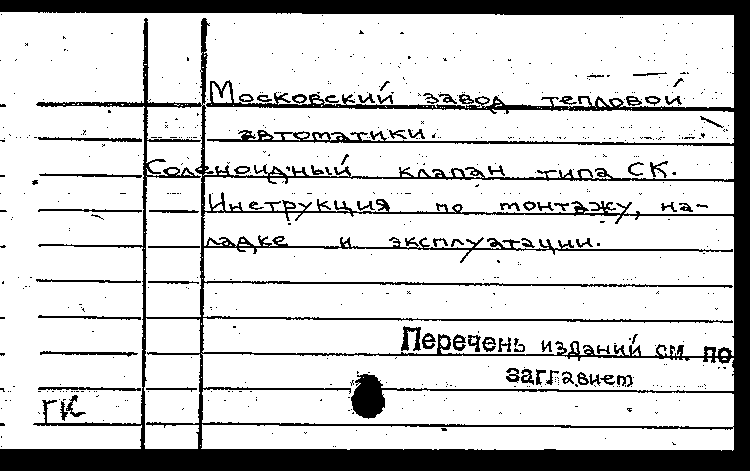 Московский завод тепловой
автоматики.
Соленоидный клапан типа СК.
Инструкция по монтажу, на-
ладке и эксплуатации.
Перечень изданий см. по
заглавием
ГК